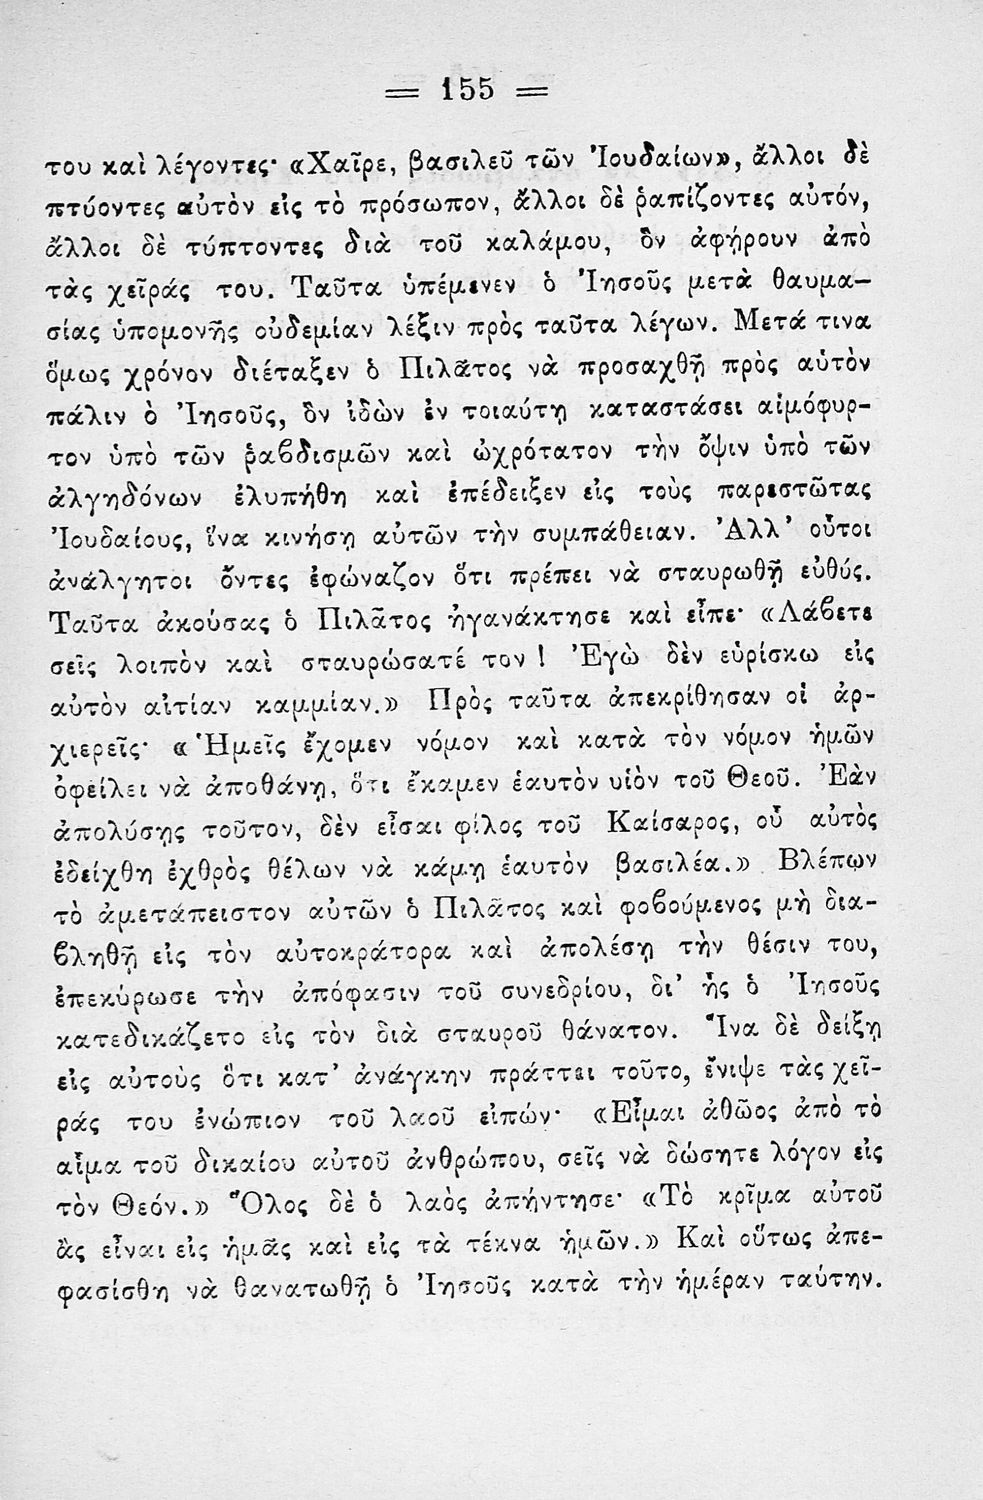 = 155 =
του καὶ λέγοντες· «Χαῖρε, βασιλεῦ τῶν Ἰουδαίων», ἄλλοι δὲ
πτύοντες αὐτὸν εἰς τὸ πρόσωπον, ἄλλοι δὲ ῥαπίζοντες αὐτόν,
ἄλλοι δὲ τύπτοντες διὰ τοῦ καλάμου, ὃν ἀφῄρουν ἀπὸ
τὰς χεῖράς του. Ταῦτα ὑπέμενεν ὁ Ἰησοῦς μετὰ θαυμα–
σίας ὑπομονῆς οὐδεμίαν λέξιν πρὸς ταῦτα λέγων. Μετά τινα
ὅμως χρόνον διέταξεν ὁ Πιλᾶτος νὰ προσαχθῇ πρὸς αὐτὸν
πάλιν ὁ Ἰησοῦς, ὃν ἰδὼν ἐν τοιαύτῃ καταστάσει αἱμόφυρ-
τον ὑπὸ τῶν ῥαβδισμῶν καὶ ὠχρότατον τὴν ὄψιν ὑπὸ τῶν
ἀλγηδόνων ἐλυπήθη καὶ ἐπέδειξεν εἰς τοὺς παρεστῶτας
Ἰουδαίους, ἵνα κινήσῃ αὐτῶν τὴν συμπάθειαν. Ἀλλ’ οὗτοι
ἀνάλγητοι ὄντες ἐφώναζον ὅτι πρέπει νὰ σταυρωθῇ εὐθύς.
Ταῦτα ἀκούσας ὁ Πιλᾶτος ἠγανάκτησε καὶ εἶπε· «Λάβετε
σεῖς λοιπὸν καὶ σταυρώσατέ τον! Ἐγὼ δὲν εὑρίσκω εἰς
αὐτὸν αἰτίαν καμμίαν.» Πρὸς ταῦτα ἀπεκρίθησαν οἱ ἀρ-
χιερεῖς· «Ἡμεῖς ἔχομεν νόμον καὶ κατὰ τὸν νόμον ἡμῶν
ὀφείλει νὰ ἀποθάνῃ, ὅτι ἔκαμεν ἑαυτὸν υἱὸν τοῦ Θεοῦ. Ἐὰν
ἀπολύσῃς τοῦτον, δὲν εἶσαι φίλος τοῦ Καίσαρος, οὗ αὐτὸς
ἐδείχθη ἐχθρὸς θέλων νὰ κάμῃ ἑαυτὸν βασιλέα.» Βλέπων
τὸ ἀμετάπειστον αὐτῶν ὁ Πιλᾶτος καὶ φοβούμενος μὴ δια-
βληθῇ εἰς τὸν αὐτοκράτορα καὶ ἀπολέσῃ τὴν θέσιν του,
ἐπεκύρωσε τὴν ἀπόφασιν τοῦ συνεδρίου, δι’ ἧς ὁ Ἰησοῦς
κατεδικάζετο εἰς τὸν διὰ σταυροῦ θάνατον. Ἵνα δὲ δείξῃ
εἰς αὐτοὺς ὅτι κατ’ ἀνάγκην πράττει τοῦτο, ἔνιψε τὰς χεῖ-
ράς του ἐνώπιον τοῦ λαοῦ εἰπών· «Εἶμαι ἀθῶος ἀπὸ τὸ
αἷμα τοῦ δικαίου αὐτοῦ ἀνθρώπου, σεῖς νὰ δώσητε λόγον εἰς
τὸν Θεόν.» Ὅλος δὲ ὁ λαὸς ἀπήντησε· «Τὸ κρῖμα αὐτοῦ
ἂς εἶναι εἰς ἡμᾶς καὶ εἰς τὰ τέκνα ἡμῶν.» Καὶ οὕτως ἀπε-
φασίσθη νὰ θανατωθῇ ὁ Ἰησοῦς κατὰ τὴν ἡμέραν ταύτην.